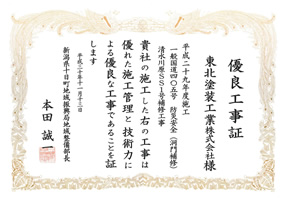 優良工事証
東北塗装工業株式会社様
平成二十九年度施工
一般国道四〇五号 防災安全(洞門補修)
清水川原SS1号補修工事
貴社の施工した右の工事は
優れた施工管理と技術力に
よる優良な工事であることを証
します
平成三十年十一月十三日
新潟県十日町地域振興局地域整備部長
本田 誠一